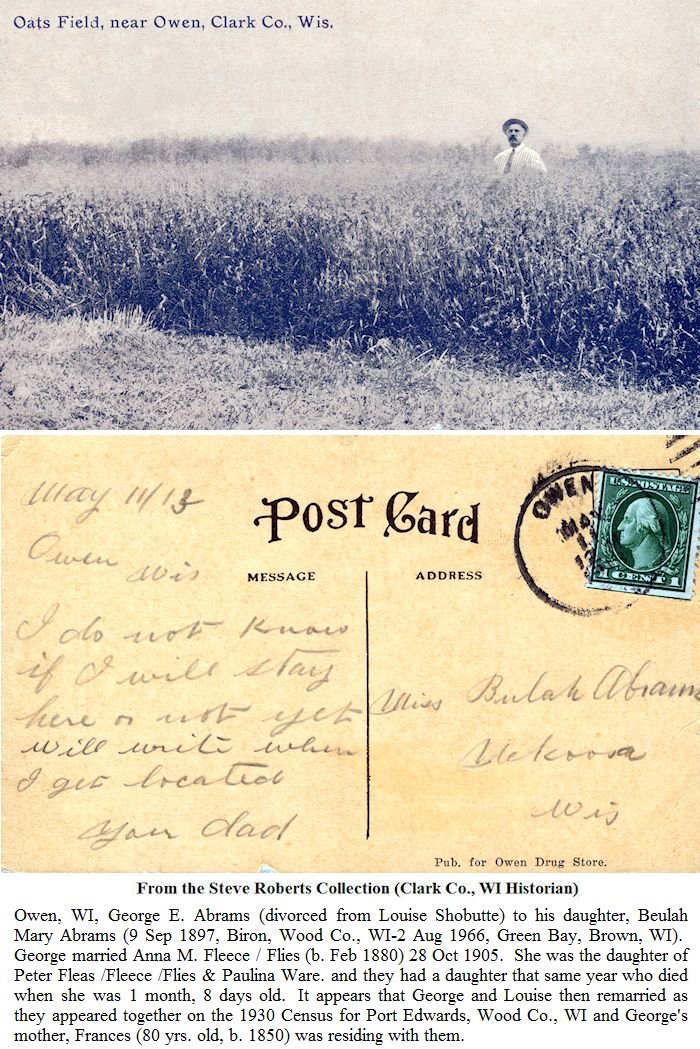 Oats Field, near Owen, Clark Co., Wis.
May 11/13
Owen Wis
I do not know
if I will stay
here or not yet
will write when
I get located
Your dad
Post Card
MESSAGE
ADDRESS
OWEN
MAY
11
U.S. POSTAGE
1 CENT 1
Miss Bulah Abrams
Nekoosa
Wis
Pub. for Owen Drug Store.
From the Steve Roberts Collection (Clark Co., WI Historian)
Owen, WI, George E. Abrams (divorced from Louise Shobutte) to his daughter, Beulah
Mary Abrams (9 Sep 1897, Biron, Wood Co., WI-2 Aug 1966, Green Bay, Brown, WI).
George married Anna M. Fleece / Flies (b. Feb 1880) 28 Oct 1905.  She was the daughter of
Peter Fleas /Fleece /Flies & Paulina Ware. and they had a daughter that same year who died
when she was 1 month, 8 days old.  It appears that George and Louise then remarried as
they appeared together on the 1930 Census for Port Edwards, Wood Co., WI and George's
mother, Frances (80 yrs. old, b. 1850) was residing with them.